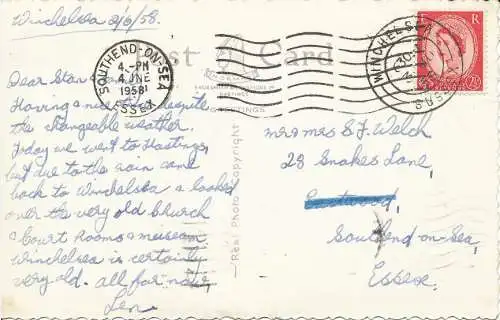 Winchelsea 2/6/58.
Post Card
SOUTHEND-ON-SEA
4.-PM
4 JNE
1958
ESSEX
WINCHELSEA
R
2½
Dear Stan
Having a nice despite
the changeable weather.
Today we went to Hastings,
but due to the rain came
back to Winchelsea & looked
over the very old Church
& Court Rooms & museum
Winchelsea is certainly
very old. All for now,
Len.
Real Photo Copyright
Mr & Mrs S F Welch
23 Snakes Lane,
Eastwood,
Southend-on-Sea,
Essex.